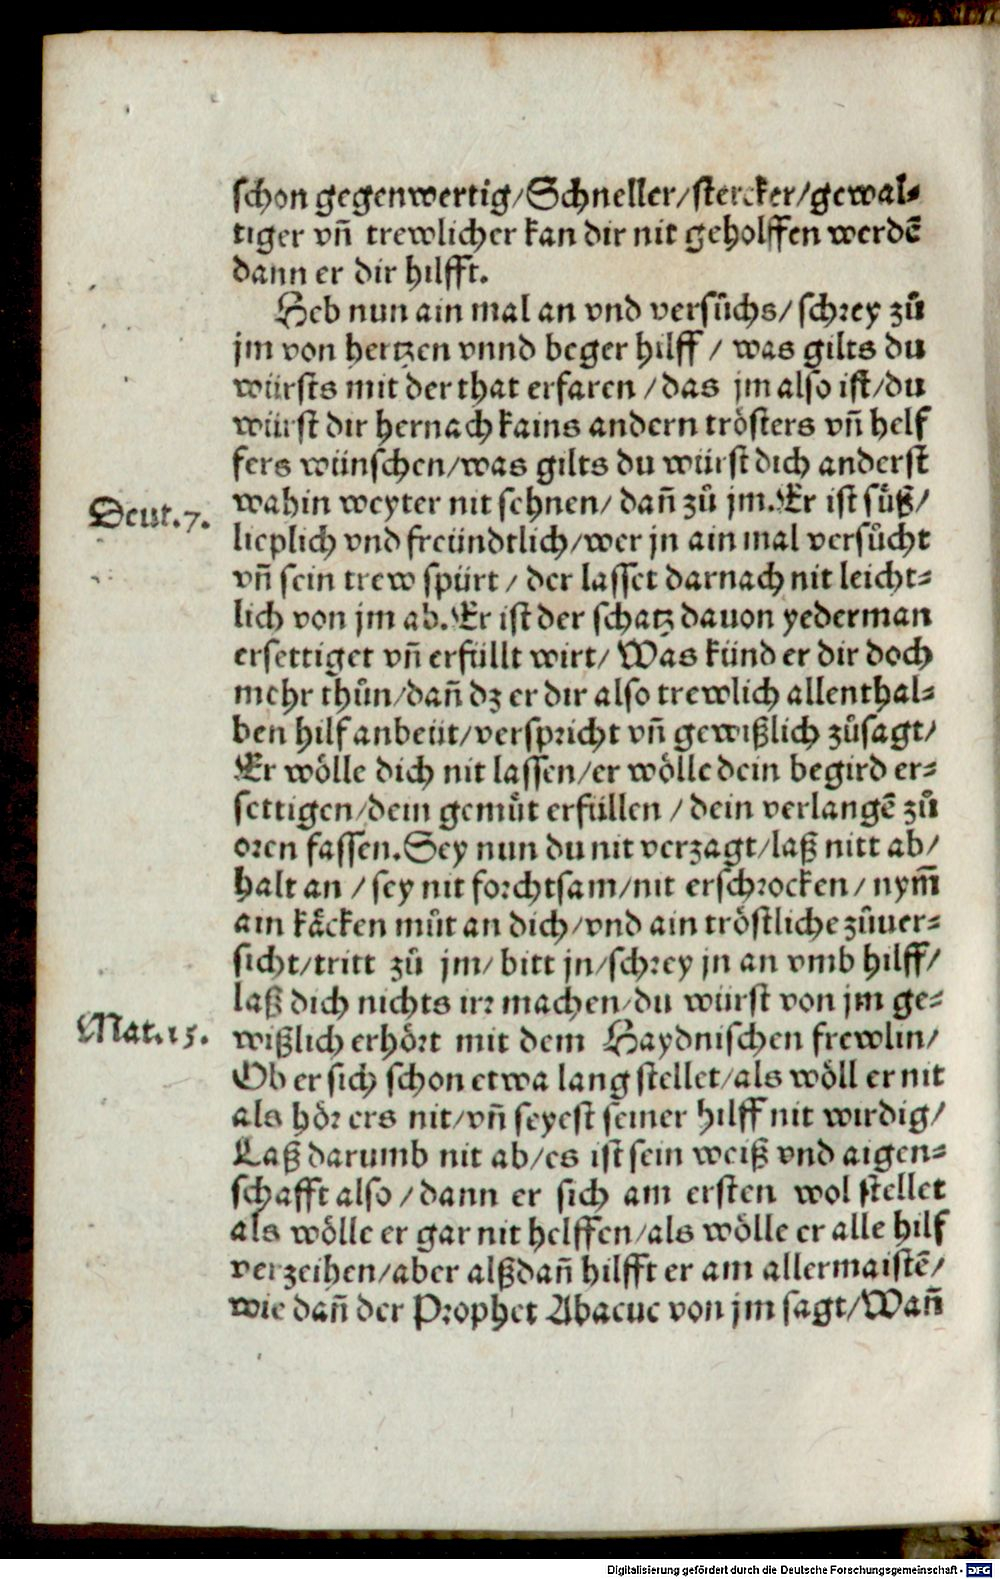 schon gegenwertig/Schneller/stercker/gewal⸗
tiger vn̄ trewlicher kan dir nit geholffen werdē
dann er dir hilfft.
Heb nun ain mal an vnd versůchs/ schrey zů
jm von hertzen vnnd beger hilff / was gilts du
würsts mit der that erfaren /das jm also ist/du
würst dir hernach kains andern trösters vn̄ helf
fers wünschen/was gilts du würst dich anderst
Deut.7.
wahin weyter nit sehnen/ dan̄ zů jm.Er ist sůß/
lieplich vnd freündtlich/wer jn ain mal versůcht
vn̄ sein trew spürt / der lasset darnach nit leicht⸗
lich von jm ab.Er ist der schatz dauon yederman
ersettiget vn̄ erfüllt wirt/ Was künd er dir doch
mehr thůn/dan̄ dz er dir also trewlich allenthal⸗
ben hilf anbeüt/verspricht vn̄ gewißlich zůsagt/
Er wölle dich nit lassen/er wölle dein begird er⸗
settigen/dein gemůt erfüllen / dein verlangē zů
oren fassen.Sey nun du nit verzagt/laß nitt ab/
halt an / sey nit forchtsam/nit erschrocken / nym̄
ain käcken můt an dich/vnd ain tröstliche zůuer⸗
sicht/tritt zů jm/ bitt jn/schrey jn an vmb hilff/
laß dich nichts irr machen/du würst von jm ge⸗
Mat.15.
wißlich erhört mit dem Haydnischen frewlin/
Ob er sich schon etwa lang stellet/als wöll er nit
als hör ers nit/vn̄ seyest seiner hilff nit wirdig/
Laß darumb nit ab/es ist sein weiß vnd aigen⸗
schafft also /dann er sich am ersten wol stellet
als wölle er gar nit helffen/als wölle er alle hilf
verzeihen/aber alßdan̄ hilfft er am allermaistē/
wie dan̄ der Prophet Abacuc von jm sagt/Wan̄
Digitalisierung gefördert durch die Deutsche Forschungsgemeinschaft - DFG